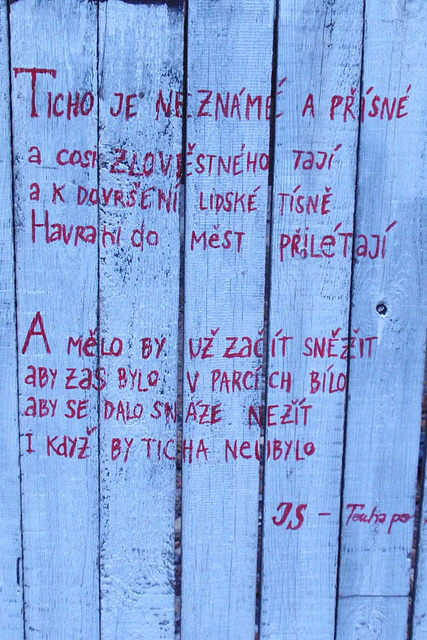 TICHO JE NEZNÁMÉ A PŘÍSNÉ
a cosi ZLOVĚSTNÉHO TAJÍ
a K DOVRŠENÍ LIDSKÉ TÍSNĚ
HavraNi do MĚST PŘILÉTAJÍ
A MĚLO BY UŽ ZaČÍT SNĚŽIT
aBY Zas BYLO V PARCÍCH BÍLO
aBY SE DALO SNÁZE NEŽÍT
I KdYŽ BY TICHA NEUBYLO
JS - Touha po